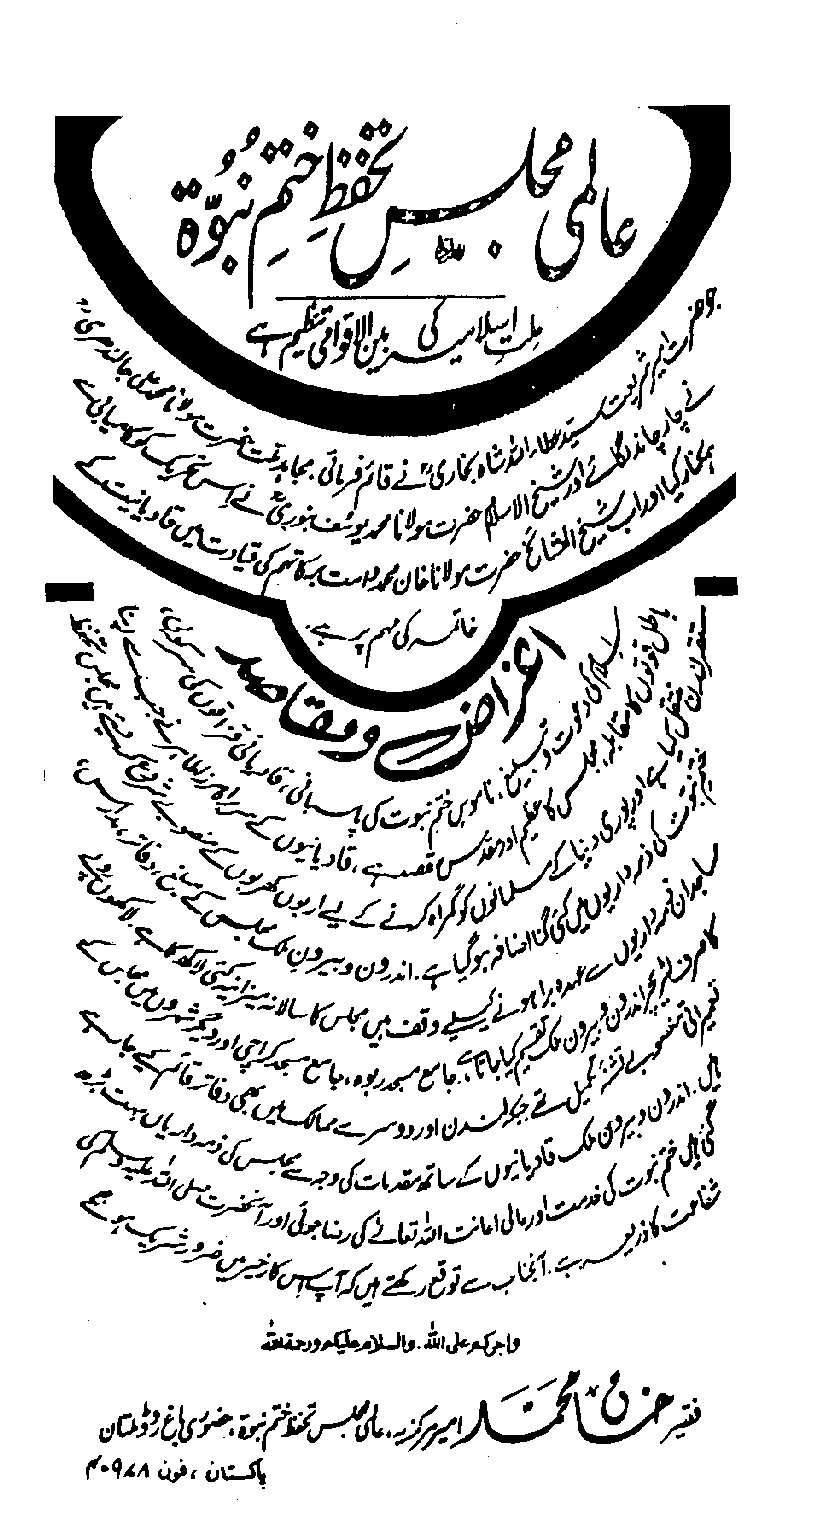 عالمی مجلسِ تحفظِ ختمِ نبوّۃ
ملتِ اسلامیہ کی بین الاقوامی تنظیم ہے
جو حضرت امیر شریعت سید عطاء اللہ شاہ بخاریؒ نے قائم فرمائی۔ مجاہد ملت حضرت مولانا محمد علی جالندھریؒ
نے چار چاند لگائے اور شیخ الاسلام حضرت مولانا محمد یوسف بنوریؒ نے اس تحریک کو کامیابی سے
ہمکنار کیا اور اب شیخ المشائخ حضرت مولانا خان محمد دامت برکاتہم کی قیادت میں قادیانیت کے
خاتمہ کی مہم پر ہے۔
اغراض و مقاصد
اسلام کی دعوت و تبلیغ، ناموسِ ختم نبوت کی پاسبانی، قادیانی قزاقوں کی سرکوبی،
باطل قوتوں کا مقابلہ، مجلس کا عظیم اور مقدس مقصد ہے، قادیانیوں کے سربراہ مرزا طاہر نے جب سے اپنا
مستقر لندن منتقل کیا ہے اور پوری دنیا کے مسلمانوں کو گمراہ کرنے کے لیے اربوں کھربوں کے منصوبے شروع کر دیئے ہیں مجلس تحفظ
ختم نبوت کی ذمہ داریوں میں کئی گنا اضافہ ہو گیا ہے۔ اندرون و بیرون ملک مجلس کے مبلغ، دفاتر، مدارس،
مساجد ان ذمہ داریوں سے عہدہ برا ہونے کیلئے وقف ہیں مجلس کا سالانہ میزانیہ کئی لاکھ کا ہے۔ لاکھوں روپے
کا صرف لٹریچر اندرون و بیرون ملک تقسیم کیا جاتا ہے۔ جامع مسجد ربوہ، جامع مسجد کراچی اور دیگر شہروں میں مجلس کے
تعمیراتی منصوبے تشنۂ تکمیل تھے جبکہ لندن اور دوسرے ممالک میں بھی دفاتر قائم کیے جا رہے
ہیں۔ اندرون و بیرون ملک قادیانیوں کے ساتھ مقدمات کی وجہ سے مجلس کی ذمہ داریاں بہت بڑھ
گئی ہیں ختم نبوت کی خدمت اور مالی اعانت اللہ تعالیٰ کی رضا جوئی اور آنحضرت صلی اللہ علیہ وسلم کی
شفاعت کا ذریعہ ہے۔ آنجناب سے توقع رکھتے ہیں کہ آپ اس کار خیر میں ضرور شریک ہوں گے
واجرکم علی اللہ۔ والسلام علیکم ورحمۃ اللہ
فقیر خان محمد امیر مرکزیہ، عالمی مجلس تحفظ ختم نبوۃ، حضوری باغ روڈ ملتان
پاکستان، فون ۴۰۹۷۸